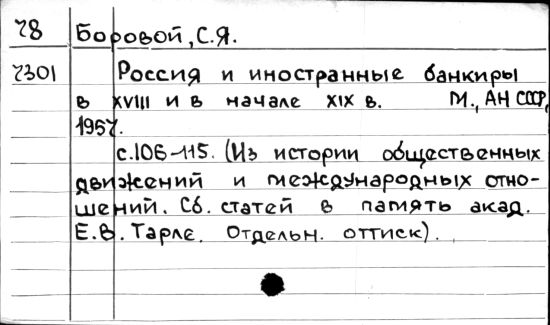 78 Боровой, С.Я.
7301 Россия и иностранные банкиры
в XVIII и в начале XIX в. М., АН СССР,
1957.
с.106-115. (Из истории общественных
движений и международных отно-
шений. Сб. статей в память акад.
Е.В. Тарле. Отдельн. оттиск).